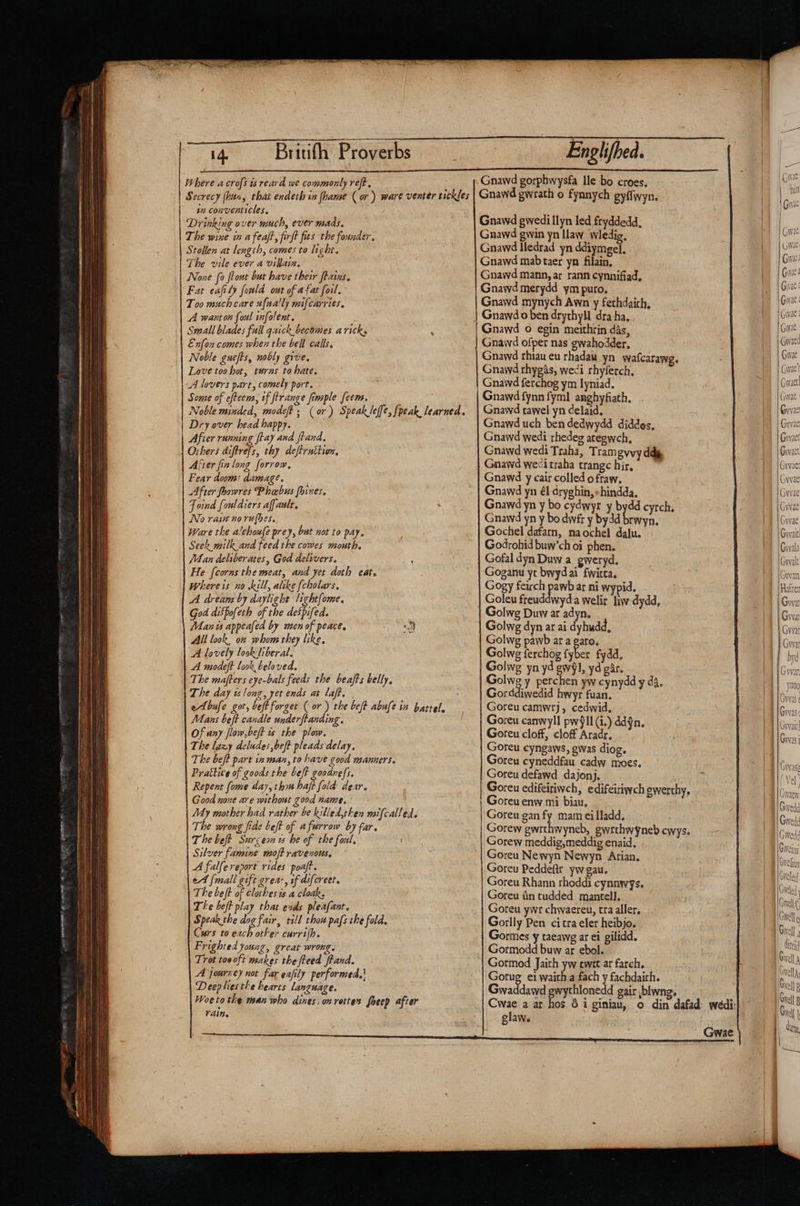 14 Britiſh Proverbs
Where a croſs is reard we commonly reſt.
Secrecy ſhun, that endeth in ſhame (or) ware venter sickles
in conventicles.
Drinking over much, ever mads.
The wine in a feaſt, firſt fits the founder.
Stollen at length, comes to light.
The vile ever a villain.
None ſo ſtout but have their ſtains.
Fat eaſily ſould out of a fat ſoil.
Too much care uſually miſcarries.
A wanton ſoul inſolent.
Small blades full quick becomes a rick.
Enſon comes when the bell calls.
Noble gueſts, nobly give.
Love too hot, turns to hate.
A lovers part, comely port.
Some of eſteem, if ſtrange ſimple ſeem.
Noble minded, modeſt; (or) Speak leſſe, ſpeak learned.
Dry over head happy.
After running ſtay and ſtand.
Others diſtreſs, thy deſtruction.
After ſin long ſorrow.
Fear doom: damage.
After ſhowres Phœbus ſhines.
Joind ſouldiers aſſault.
No rain no ruſhes.
Ware the alehouſe prey, but not to pay.
Seek milk and feed the cowes mouth.
Man deliberates, God delivers.
He ſcorns the meat, and yet doth eat.
Where is no skill, alike ſcholars.
A dream by daylight lightſome.
God diſpoſeth of the deſpiſed.
Man is appeaſed by men of peace.
All look, on whom they like.
A lovely look liberal.
A modeſt look beloved.
The maſters eye-bals feeds the beaſts belly.
The day is long, yet ends at laſt.
Abuſe got, beſt forget (or) the beſt abuſe in battel.
Mans beſt candle underſtanding.
Of any ſlow, beſt is the plow.
The lazy deludes, beſt pleads delay.
The beſt part in man, to have good manners.
Practice of goods the beſt goodneſs.
Repent ſome day, thou haſt ſold dear.
Good none are without good name.
My mother had rather be killed, then miſcalled.
The wrong ſide beſt of a furrow by far.
The beſt Surgeon is he of the ſoul.
Silver famine moſt ravenous.
A falſe report rides poaſt.
A ſmall gift great, if diſcreet.
The beſt of clothes is a cloak.
The beſt play that ends pleaſant.
Speak the dog fair, till thou paſs the fold.
Curs to each other curriſh.
Frighted young, great wrong.
Trot too oft makes the ſteed ſtand.
A journey not far eaſily performed.
Deep lies the hearts language.
Woe to the man who dines, on rotten ſheep after
rain.
Engliſhed.
Gnawd gorphwysfa lle bo croes.
Gnawd gwrath o fynnych gyffwyn.
Gnawd gwedi llyn led fryddedd.
Gnawd gwin yn llaw wledig.
Gnawd lledrad yn ddiymgel.
Gnawd mab taer yn filain.
Gnawd mann, ar rann cynnifiad.
Gnawd merydd ym puro.
Gnawd mynych Awn y fethdaith.
Gnawd o ben drythyll dra ha.
Gnawd o egin meithrin dâs,
Gnawd ofper nas gwahodder.
Gnawd rhiau eu rhadau yn wafcarawg.
Gnawd rhygâs, wedi rhyferch.
Gnawd ferchog ym lyniad.
Gnawd fynn fyml anghyfiath.
Gnawd tawel yn delaid.
Gnawd uch ben dedwydd diddos.
Gnawd wedi rhedeg ategwch.
Gnawd wedi Traha, Tramgwydd
Gnawd wedi traha trangc hir.
Gnawd y cair colled o fraw.
Gnawd yn êl dryghin, hindda.
Gnawd yn y bo cydwyr y bydd cyrch.
Gnawd yn y bo dwfr y bydd brwyn.
Gochel dafarn, na ochel dalu.
Godrohid buw'ch oi phen.
Gofal dyn Duw a gweryd.
Goganu yt bwyd ai fwitta.
Gogy feirch pawb ar ni wypid.
Goleu freuddwyd a welir liw dydd,
Golwg Duw ar adyn.
Golwg dyn ar ai dyhudd.
Golwg pawb ar a garo.
Golwg ferchog fyber fydd.
Golwg yn yd gwŷl, yd gâr.
Golwg y perchen yw cynydd y dâ.
Gorddiwedid hwyr fuan.
Goreu camwrj, cedwid.
Goreu canwyll pwŷll (i.) ddŷn.
Goreu cloff, cloff Aradr.
Goreu cyngaws, gwas diog.
Goreu cyneddfau cadw moes.
Goreu defawd dajonj.
Goreu edifeiriwch, edifeiriwch gwerthy,
Goreu enw mi biau.
Goreu gan fy mam ei lladd.
Gorew gwrthwyneb, gwrthwŷneb cwys.
Gorew meddig, meddig enaid.
Goreu Newyn Newyn Arian.
Goreu Peddeftr yw gau.
Goreu Rhann rhoddi cynnwys.
Goreu ûn tudded mantell.
Goreu ywr chwaereu, tra aller.
Gorlly Pen ci tra eler heibjo.
Gormes y taeawg ar ei gilidd.
Gormodd buw ar ebol.
Gormod Jaith yw twit ar farch.
Gorug ei waith a fach y fachdaith.
Gwaddawd gwythlonedd gair blwng.
Cwae a ar hos ô i giniau, o din dafad wedi
glaw.
Gwae